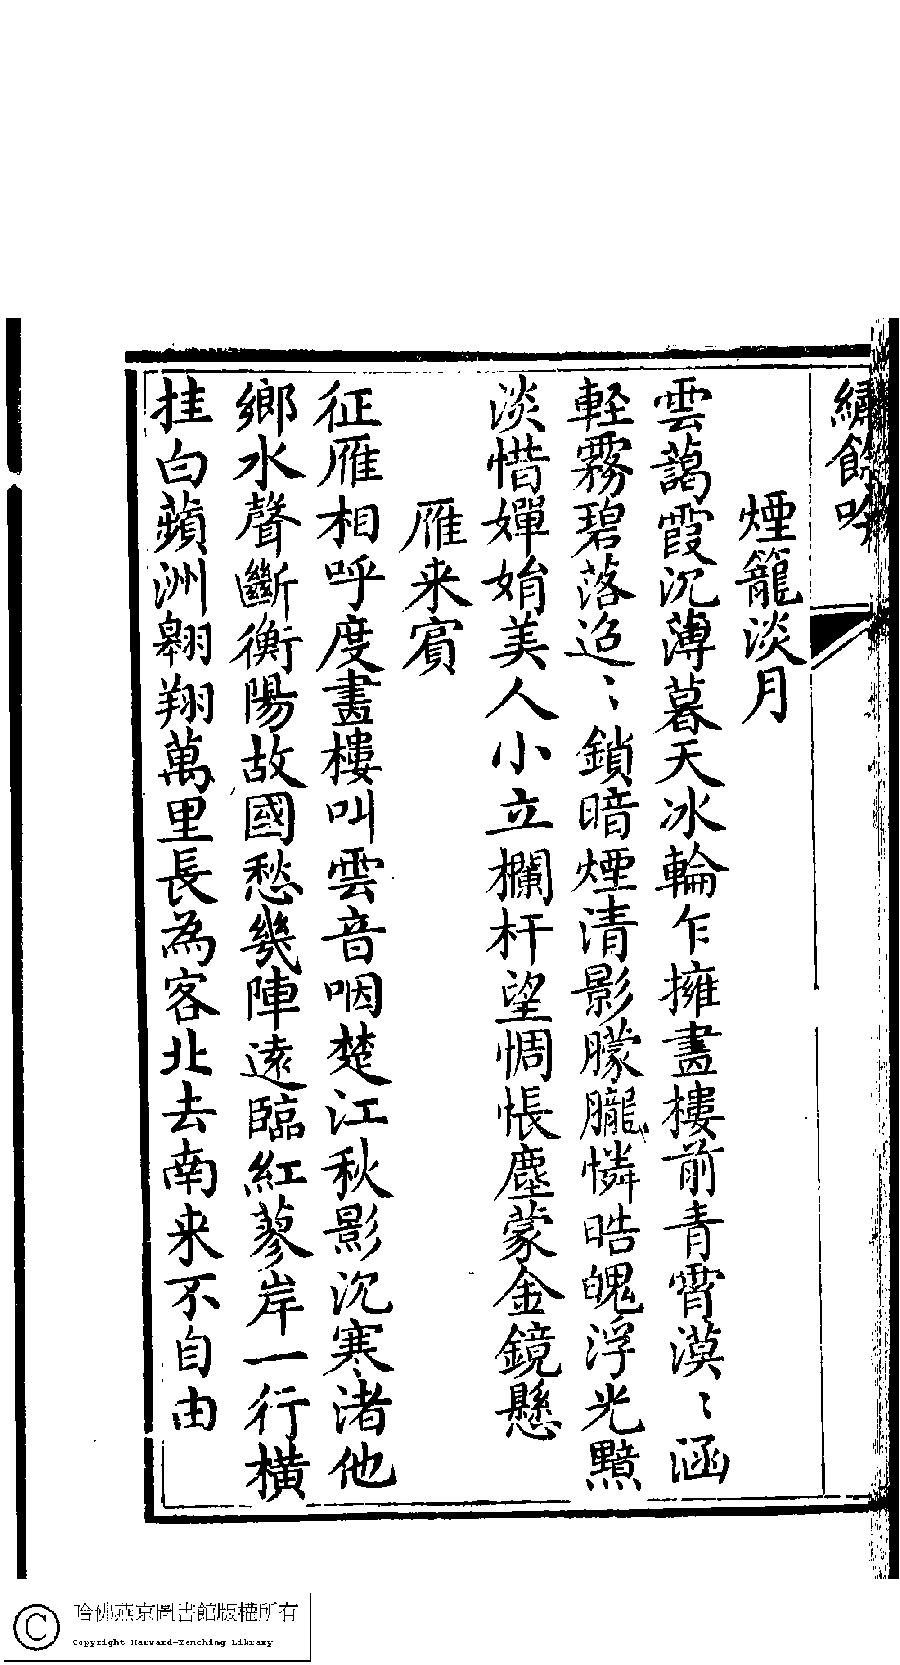 繡餘吟
煙籠淡月
雲藹霞沉薄暮天冰輪乍擁畫樓前青霄漠〻涵
輕霧碧落迢〻鎖暗煙清影朦朧憐皓魄浮光黯
淡惜嬋娟美人小立欄杆望惆悵塵蒙金鏡懸
雁来賓
征雁相呼度畫樓叫雲音咽楚江秋影沉寒渚他
鄉水聲斷衡陽故國愁幾陣遠臨紅蓼岸一行橫
挂白蘋洲翱翔萬里長為客北去南来不自由
哈佛燕京圖書館版權所有
Copyright Harvard-Yenching Library